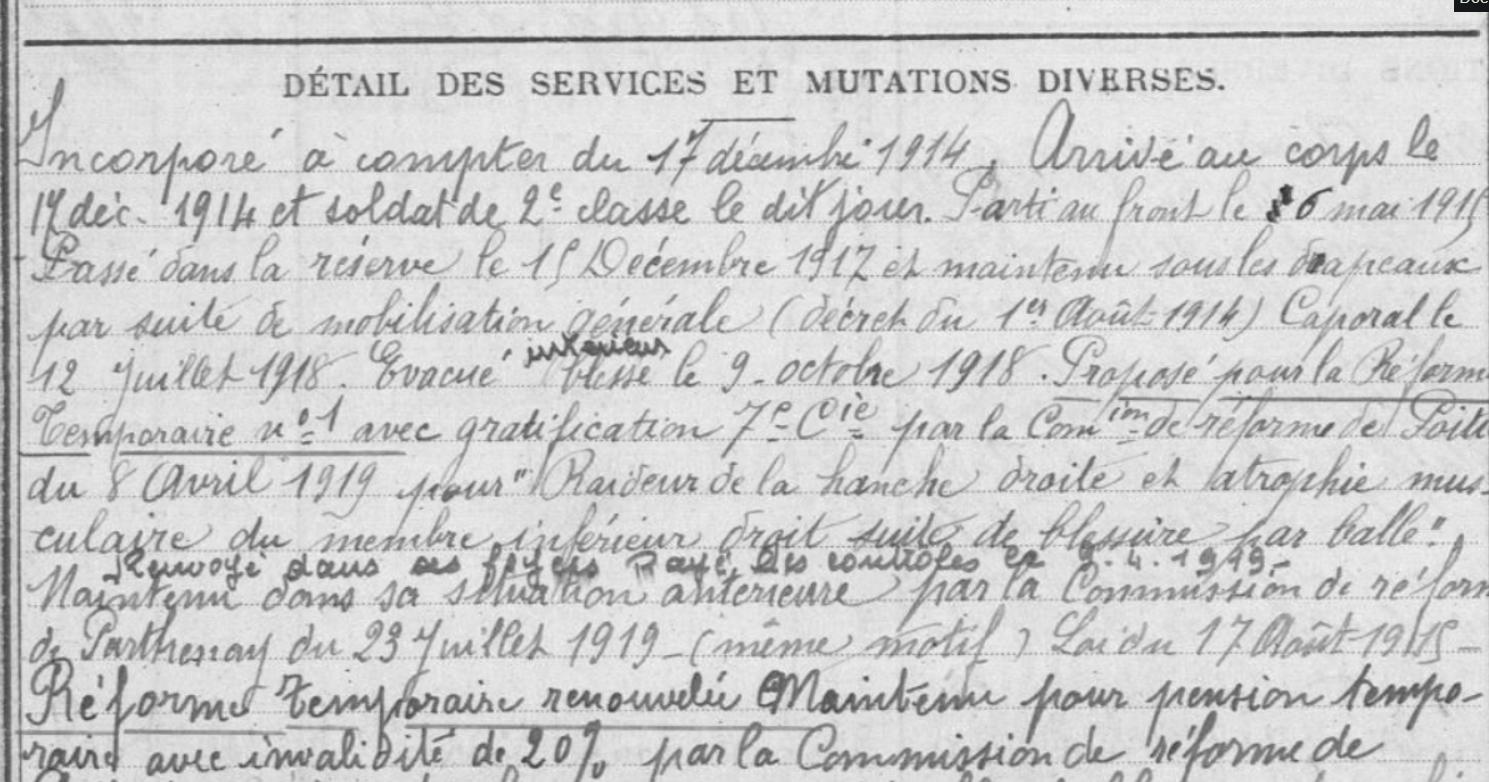 DÉTAIL DES SERVICES ET MUTATIONS DIVERSES.
Incorporé à compter du 17 décembre 1914. Arrivé au corps le
17 déc. 1914 et soldat de 2e classe le dit jour. Parti au front le 6 mai 1915
Passé dans la réserve le 15 Décembre 1917 et maintenu sous les drapeaux
par suite de mobilisation générale (décret du 1er Août 1914) Caporal le
intérieur
12 Juillet 1918. Evacué blessé le 9 octobre 1918. Proposé pour la Réform
Temporaire n° 1 avec gratification 7e Cie par la Comion de réforme de Poiti
du 8 Avril 1919 pour "Raideur de la hanche droite et atrophie mus-
culaire du membre inférieur droit suite de blessure par balle".
Renvoyé dans ses foyers Rayé des contrôles le 9.4.1919.-
Maintenu dans sa situation antérieure par la Commission de réform
de Parthenay du 23 Juillet 1919 - (même motif) Loi du 17 Août 1915 -
Réforme temporaire renouvelée Maintenu pour pension tempo-
raire avec invalidité de 20% par la Commission de réforme de